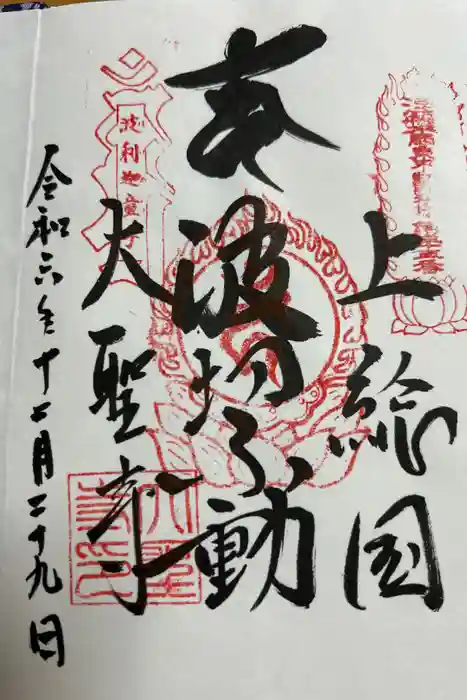 上総国
奉
波切不動
大聖寺
令和六年十二月二十九日
波利
童子